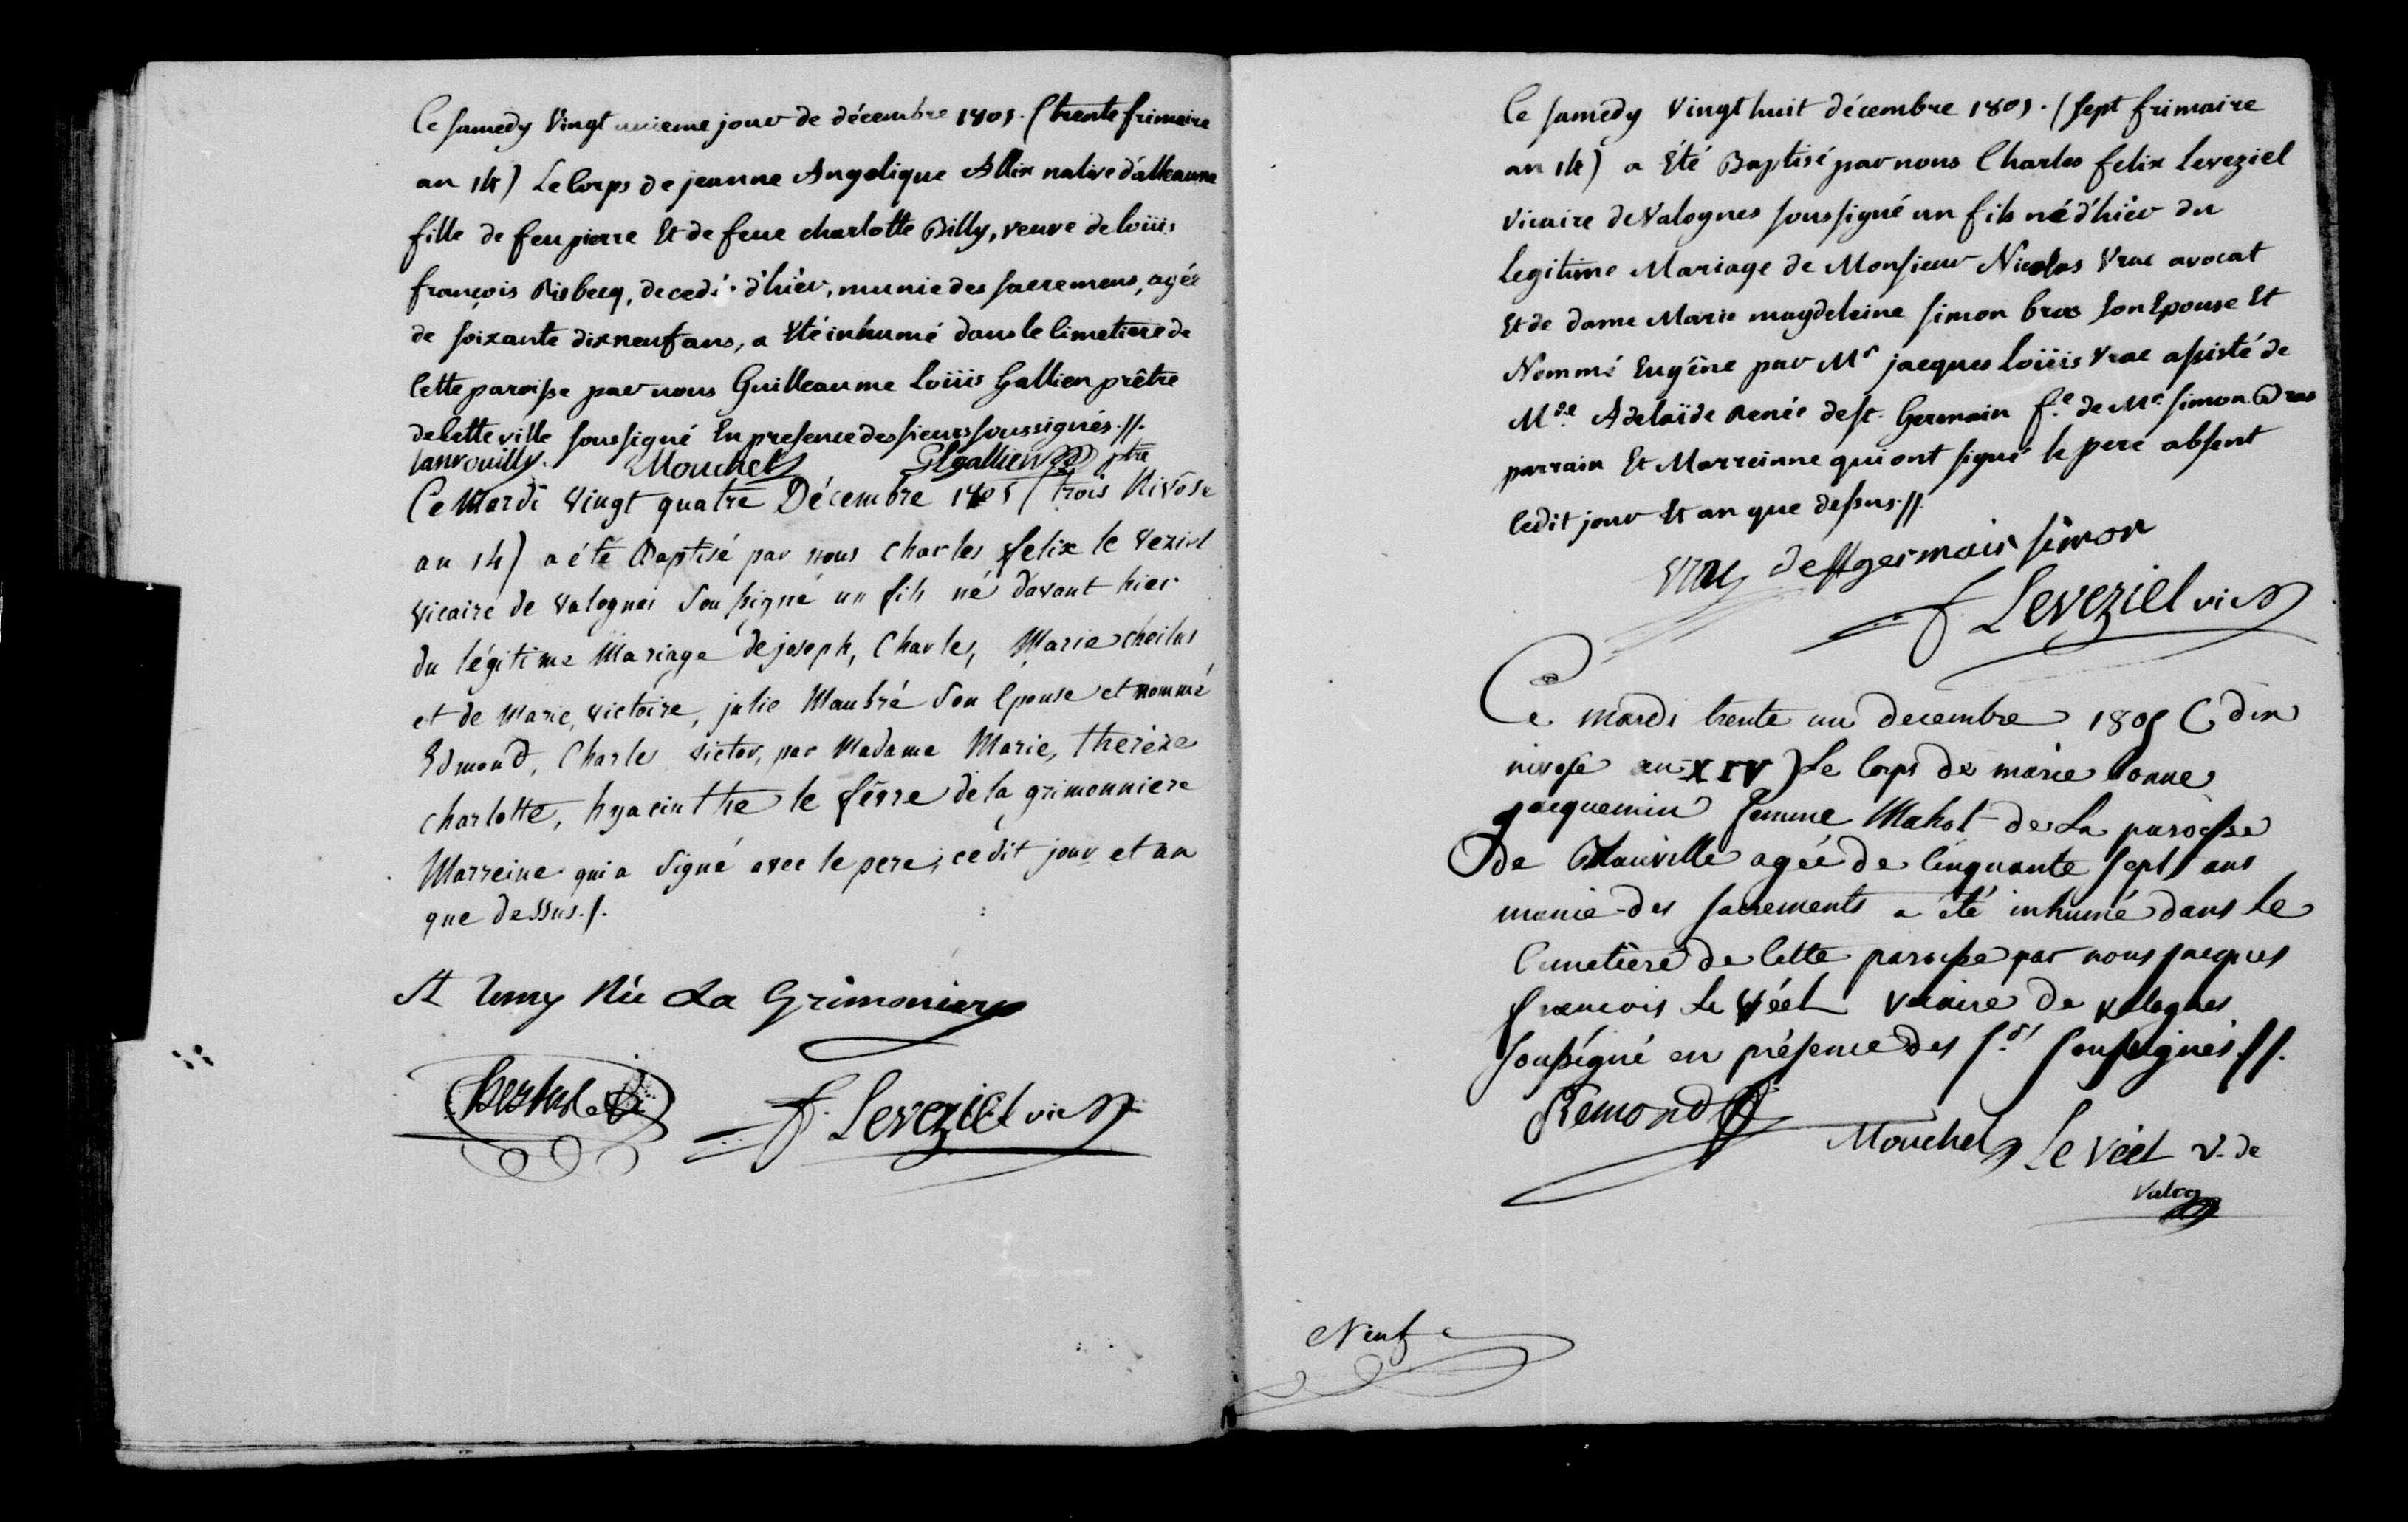 Ce samedy Vingt unieme jour de décembre 1805. (trente frimaire
an 14) Le Corps de jeanne Angelique Allix native d'alleaume
fille de feu pierre Et de feue charlotte Billy, veuve de loüis
françois Risbecq, decedé d'hièr, munie des sacremens, agée
de soixante dix neuf ans, a Eté inhumé dans le Cimetiere de
Cette paroisse par nous Guilleaume Loüis Gallien prêtre
de Cette ville soussigné En presence des sieurs soussignés.//.
Mouchel GLgallien ptre
Ce Mardi vingt quatre Décembre 1805 (trois Nivôse
an 14) a été Baptisé par nous Charles felix le Veziel
vicaire de valognes soussigné un fils né davant hier
du légitime Mariage de joseph, Charles, Marie
et de Marie, victoire, julie Maubré son Epouse et nommé
Edmond, Charles victor, par Madame Marie, therèze
charlotte, hyacinthe le fèvre de la grimonniere
Marreine qui a signé avec le pere, cedit jour et an
que dessus./.
St Remy Née La Grimoniere
F. Leveziel vic
Ce samedy Vingt huit décembre 1805. (sept frimaire
an 14) a Été Baptisé par nous Charles felix Leveziel
vicaire de Valognes soussigné un fils né d'hièr du
legitime Mariage de Monsieur Nicolas Vrac avocat
Et de dame Marie magdeleine simon bras son Epouse Et
Nommé Eugène par Mr jacques Loüis Vrac assisté de
Mde Adelaïde Renée de st. Germain fe de Mr simon Bras
parrain Et Marreinne qui ont signé le pere absent
cedit jour Et an que dessus.//.
Vrac de st germain simon
F Leveziel vic
Ce mardi trente un decembre 1805 (dix
nivose an XIV) Le Corps de marie bonne
jacquemin femme Mahot de La paroisse
de agée de Cinquante sept ans
munie des sacrements a été inhumé dans Le
Cimetière de Cette paroisse par nous jacques
francois Le Véel vicaire de valognes
soussigné en présence des srs soussignés //.
Remond
Mouchel Le Véel v. de
Valog
Neuf